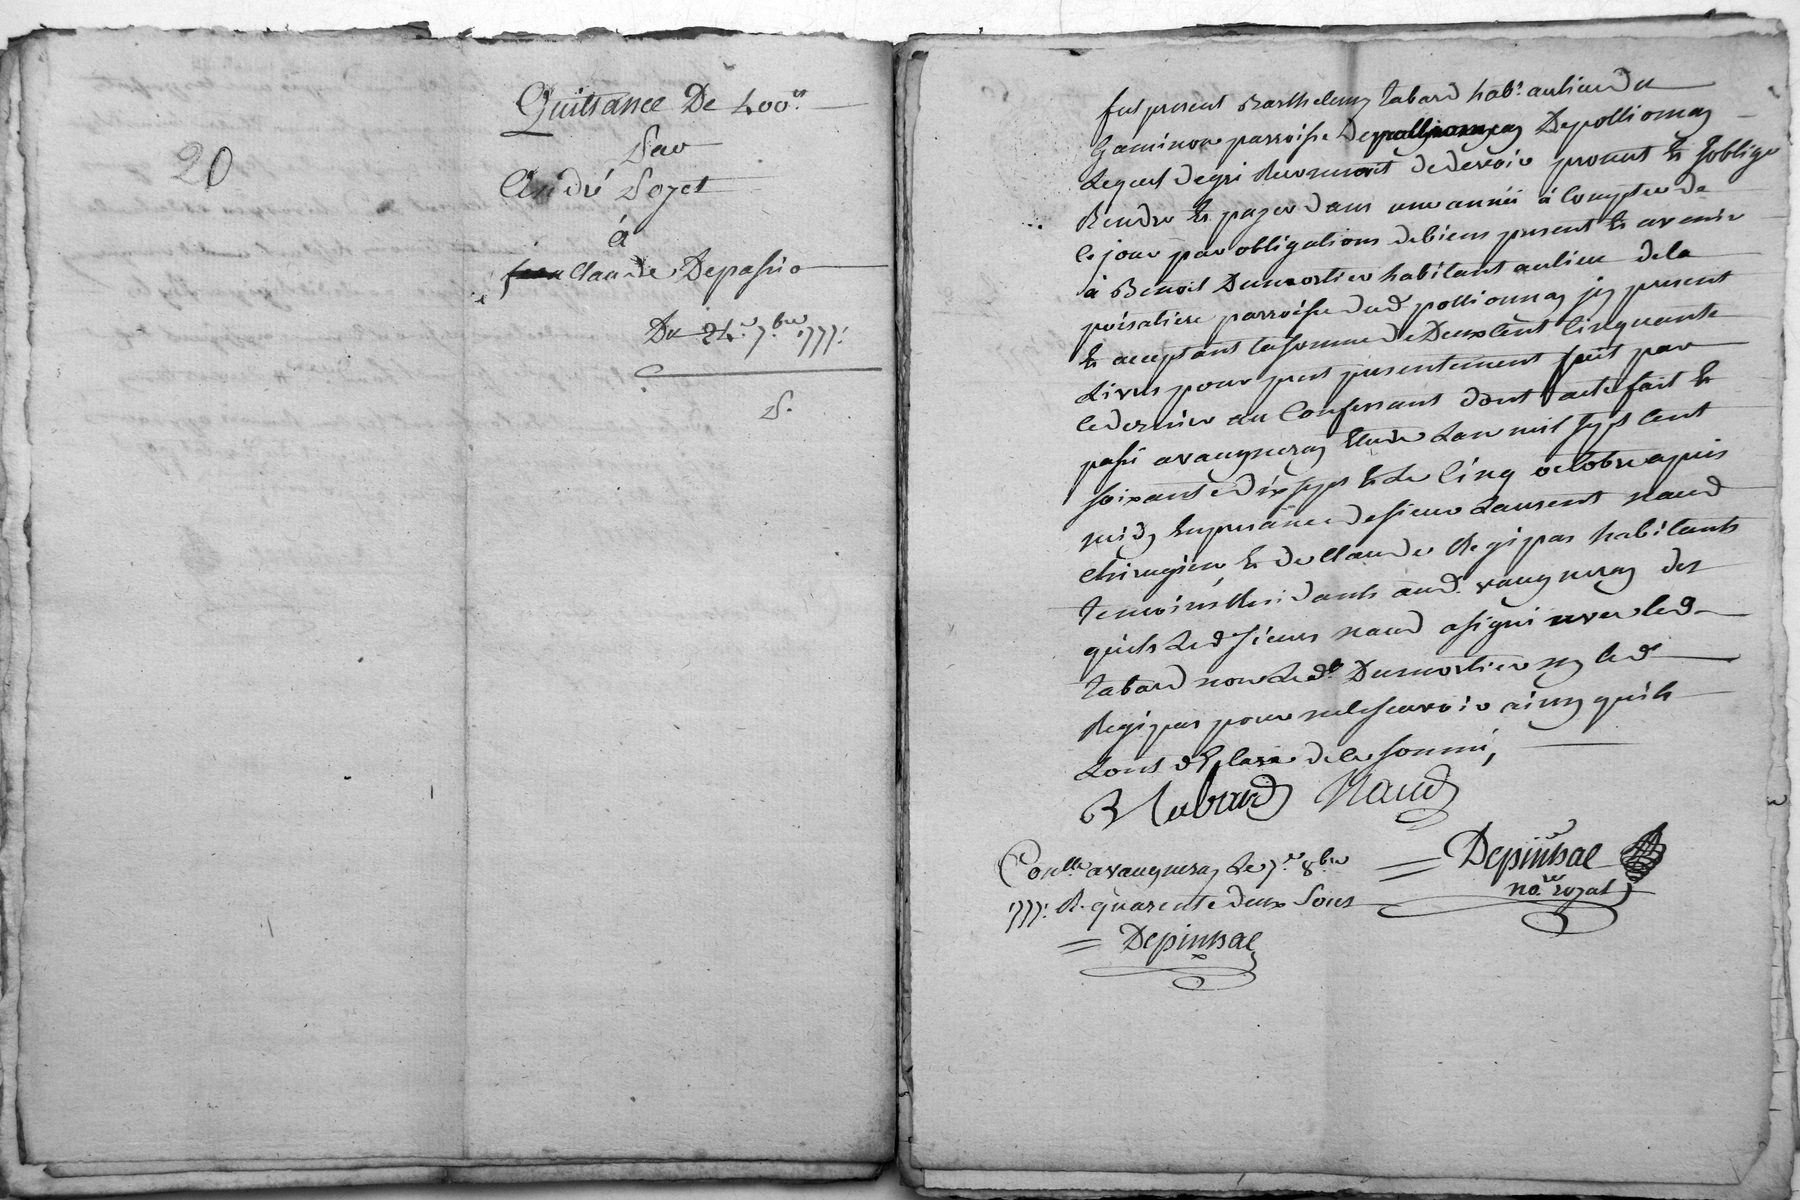 20
Quittance De 400ᵗᵗ
Par
André Poyet
à
Claude Depassio
Du 24ᵉ 7bre 1777:
P.
fut present Barthelemy Tabard habt. au lieu du
Gaminon parroisse Depollionnay
Lequel degrí de devoir promet Et Soblige
Rendre Et payer dans une année à Compter de
Ce jour par obligations de biens present Et avenir
à Benoit Dumortier habitant au lieu de la
poisatiere parroisse dud. pollionnay jcy present
Et acceptant la somme de Deux Cent Cinquante
Livres pour pret presentement fait par
Ce dernier au Confessant dont acte fait Et
passé a vaugneray Etude Lan mil sept Cent
soixante dix sept Et Le Cinq octobre apres
midy En presance de sieur Laurent naud
Chirugien Et de Claude Regipas habitants
Temoins Residants aud. vaugneray des
quels Led. sieur naud a signé avec led.
Tabard non Led. Dumortier ny led.
Regipas pour ne le scavoir ainsy quils
Lont declaré de ce sommé,
B Tabard Naud
Conlle a vaugneray Le 7e 8bre
1777: R. quarente deux Sous
Depinhac
nore. royal
Depinhac